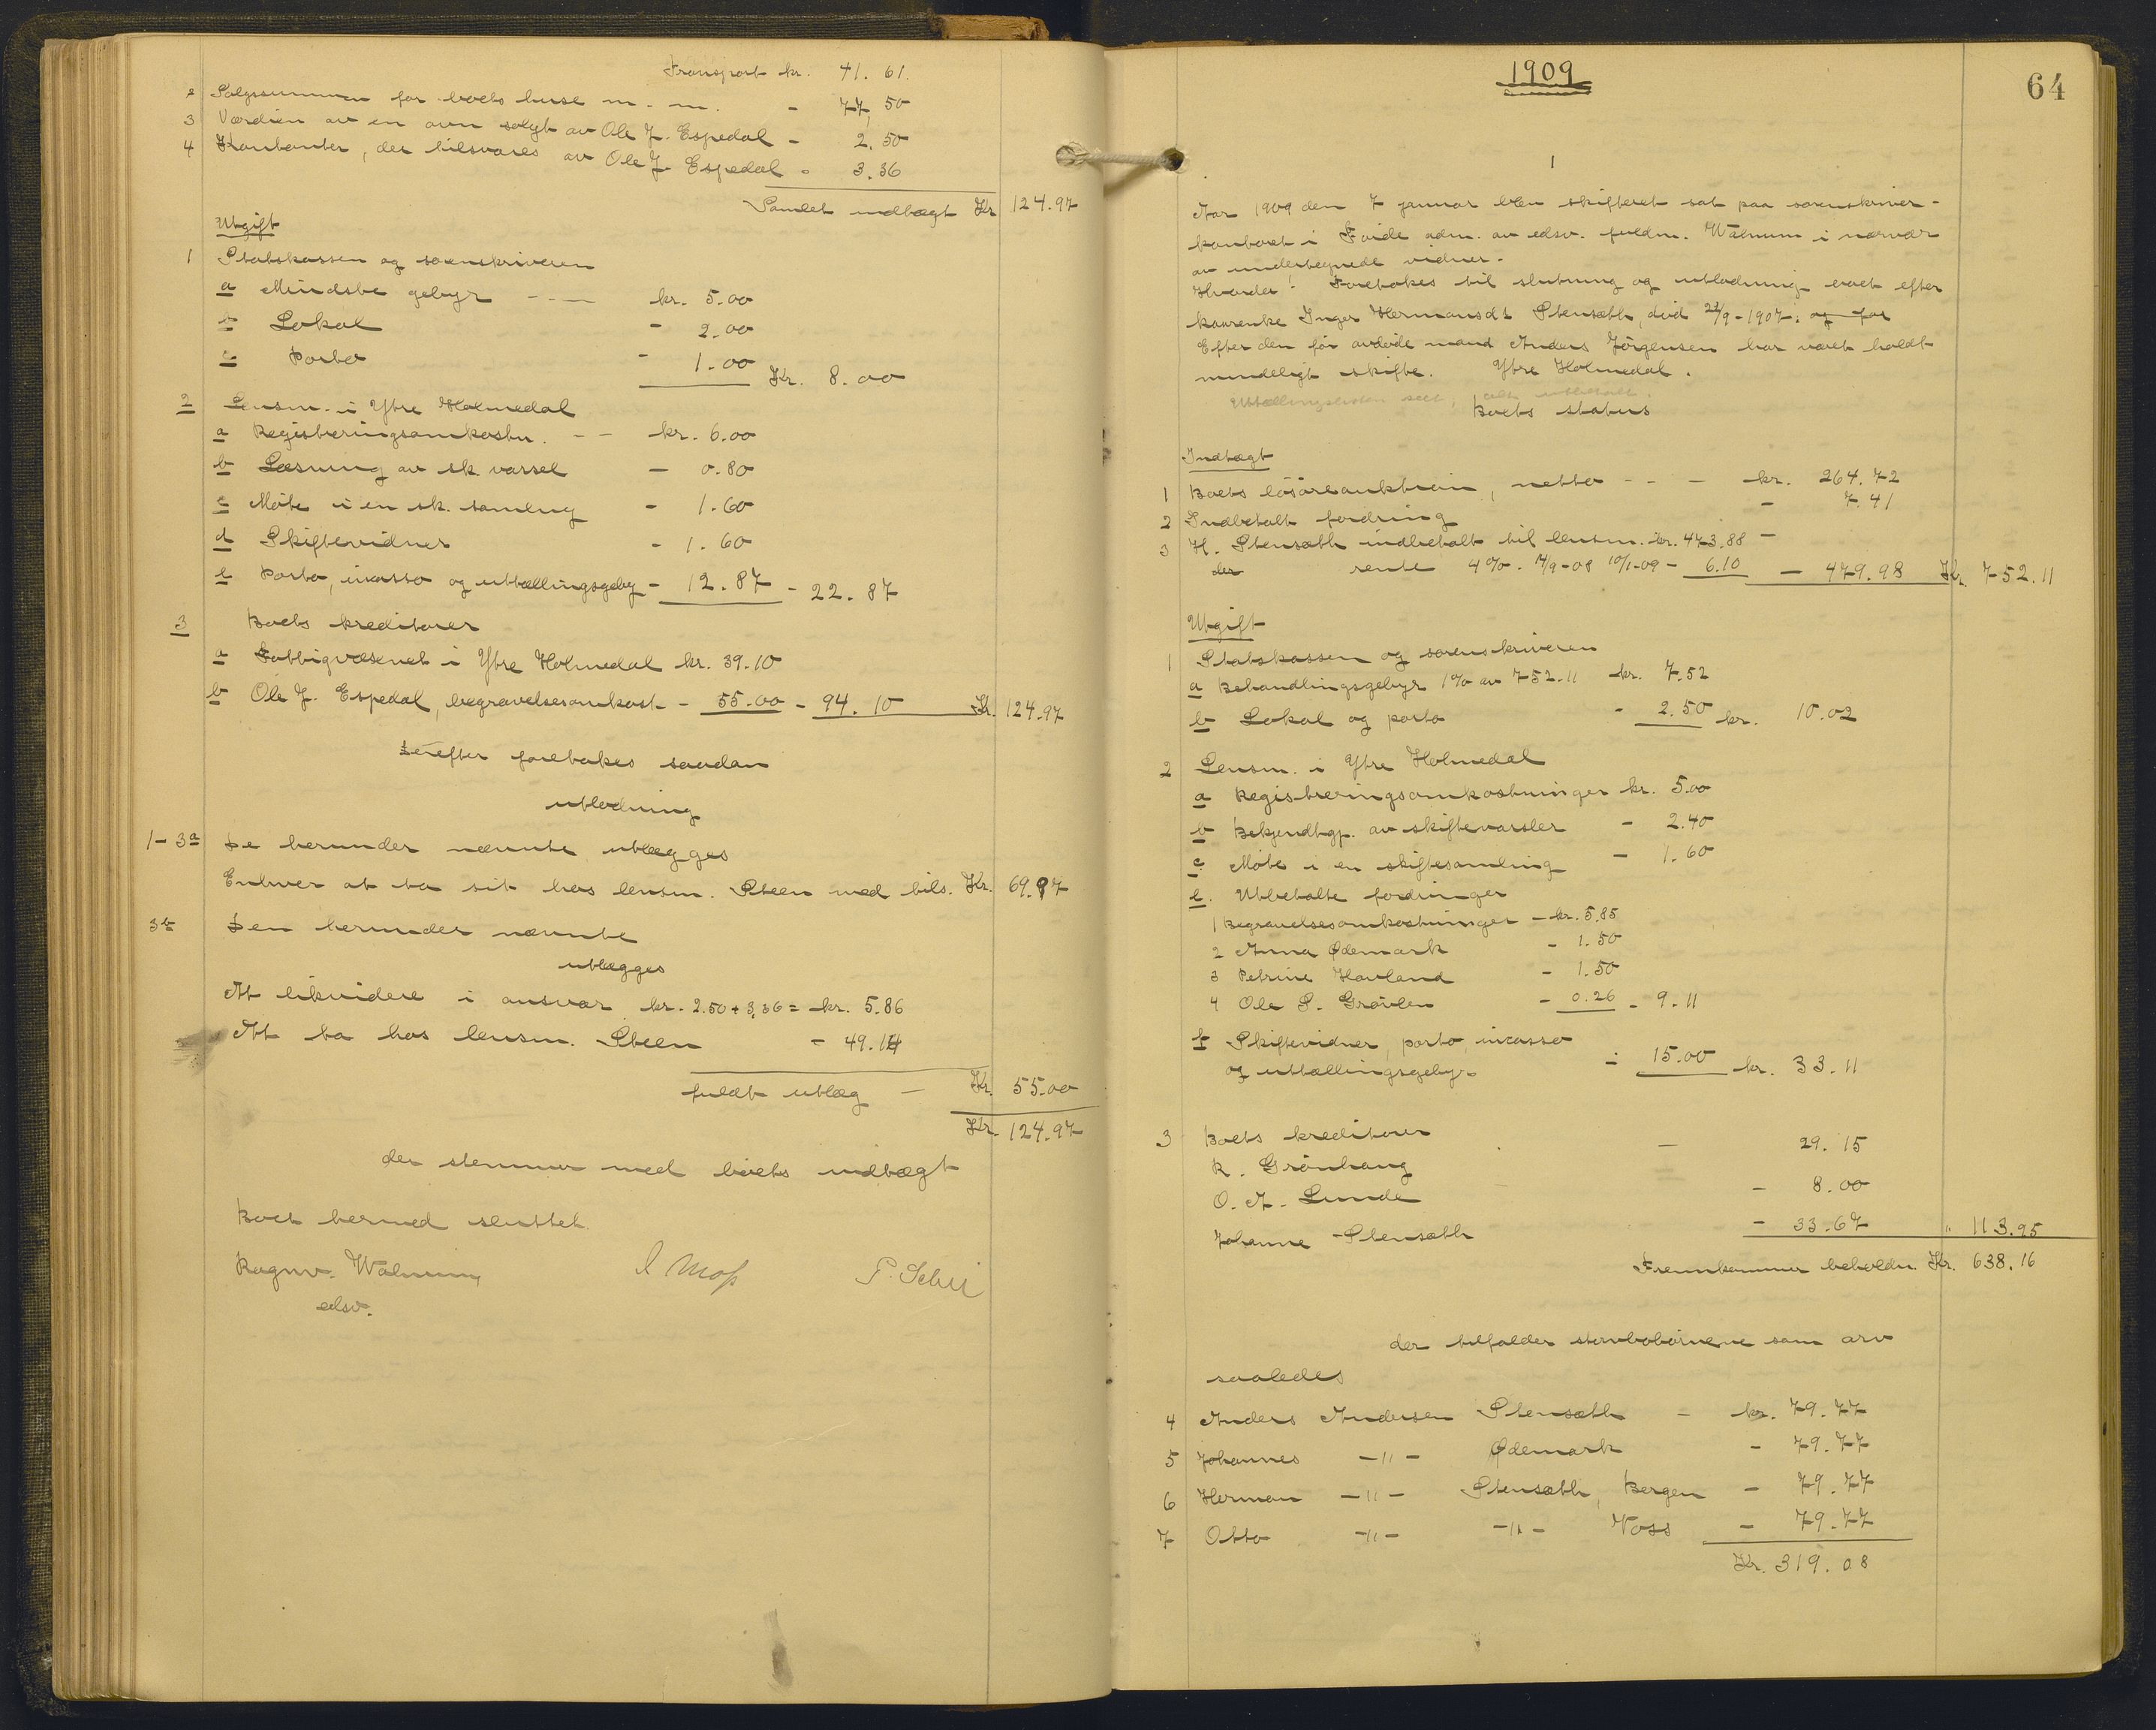 Transport kr. 41.61.
2 Salgssummen for boets huse m. m. - 77,50
3 Værdien av en ovn solgt av Ole J. Espedal - 2.50
4 Kontanter, der tilsvares av Ole J. Espedal - 3.36
Samlet indtægt Kr 124.97
Utgift
1 Statskassen og sorenskriveren
a Mindste gebyr - - - kr. 5.00
b Lokal - 2.00
c Porto - 1.00 Kr. 8.00
2 Lensm. i Ytre Holmedal
a Registreringsomkostn. - - kr. 6.00
b Læsning av sk. varsel - 0.80
c Møte i en sk. samling - 1.60
d Skiftevidner - 1.60
e Porto, inkasso og uttællingsgeby - 12.87 - 22.87
3 Boets kreditorer
a Fattigvæsenet i Ytre Holmedal kr. 39.10
b Ole J. Espedal, begravelsesomkost. - 55.00 - 94.10 Kr. 124.97
Derefter foretokes saadan
utlodning
1-3a De herunder nævnte utlægges
Enhver at ta sit hos lensm. Steen med tils. Kr. 69.97
3b Den herunder nævnte
utlægges
At likvidere i ansvar kr. 2.50 + 3,36 = kr. 5.86
At ta hos lensm. Steen - 49.14
fuldt utlæg - Kr. 55.00
Kr. 124.97
der stemmer med boets indtægt
Boet hermed sluttet.
Ragnv. Walnum
edsv.
I Moss P. Schei
1909
64
1
Aar 1909 den 7 januar blev skifteret sat paa sorenskriver-
kontoret i Førde adm. av edsv. fuldm. Walnum i nærvær
av undertegnede vidner.
Hvorda! Foretokes til slutning og utlodning boet efter
kaarenke Inger Hermansdt Stensæth, død 21/9-1907. og for
Efter den før avdøde mand Anders Jörgensen har været holdt
mindeligt skifte. Ytre Holmedal.
Boets status
Indtægt
1 Boets løsøreauktion, netto - - - kr. 264.72
2 Indbetalt fordring - 7.41
3 H. Stensæth indbetalt til lensm. kr. 473.88 -
der rente 4%. 14/9-08 10/1-09 - 6.10 - 479.98 Kr. 752.11
Utgift
1 Statskassen og sorenskriveren
a Behandlingsgebyr 1% av 752.11 kr. 7.52
b Lokal og porto - 2.50 kr. 10.02
2 Lensm. i Ytre Holmedal
a Registreringsomkostninger kr. 5.00
b Bekjendtgj. av skiftevarsler - 2.40
c Møte i en skiftesamling - 1.60
e. Utbetalte fordringer
1 Begravelsesomkostninger - kr. 5.85
2 Anna Ødemark - 1.50
3 Petrine Havland - 1.50
4 Ole S. Grøvlen - 0.26 - 9.11
f Skiftevidner, porto, inkasso
og uttællingsgebyr - 15.00 kr. 33.11
3 Boets kreditorer
K. Grönhaug - 29.15
O. A. Lunde - 8.00
Johanne Stensæth - 33.67 " 113.95
Fremkommer beholdn. Kr. 638.16
der tilfalder stervbobörnene som arv
saaledes
4 Anders Andersen Stensæth - kr. 79.77
5 Johannes -"- Ødemark - 79.77
6 Herman -"- Stensæth, Bergen - 79.77
7 Otto -"- -"- Voss - 79.77
Kr. 319.08